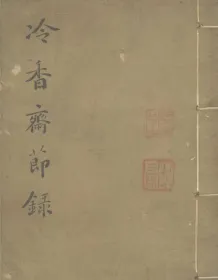 冷香齋節錄